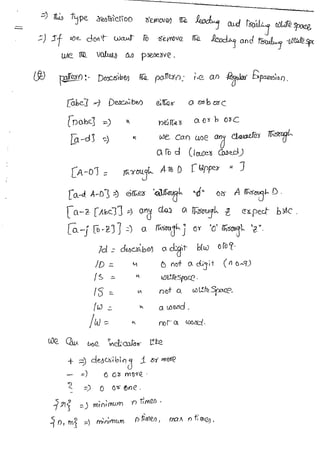 =) this type restriction removes the leading and trailing white space
=) If we don't want to remove the leading and trailing white space
use the values as preserve.
(8) pattern:- Describes the pattern; i.e an Regular Expression.
[abc] => Describes either a or b or c
[^abc] =) " neither a or b or c
[a-d] =) " we can use any character through
a to d (lower cased)
[A-D] = through A to D [Upper " ]
[a-d A-D] =) either "a through "d" or A through D.
[a-z [^bc]] =) any char a through z expect b & c.
[a-j [o-z]] =) a through j or "o" through "z".
\d = describes a digit b/w 0 to 9.
\D = " not a digit (^0-9)
\s = " whitespace.
\S = " not a white space.
\w = " a word.
\W = " not a word.
we can use indicator like
+ =) describing 1 or more
=) 0 or more.
? =) 0 or one.
{n} =) minimum n times.
{n, m} =) minimum n times, max n times.